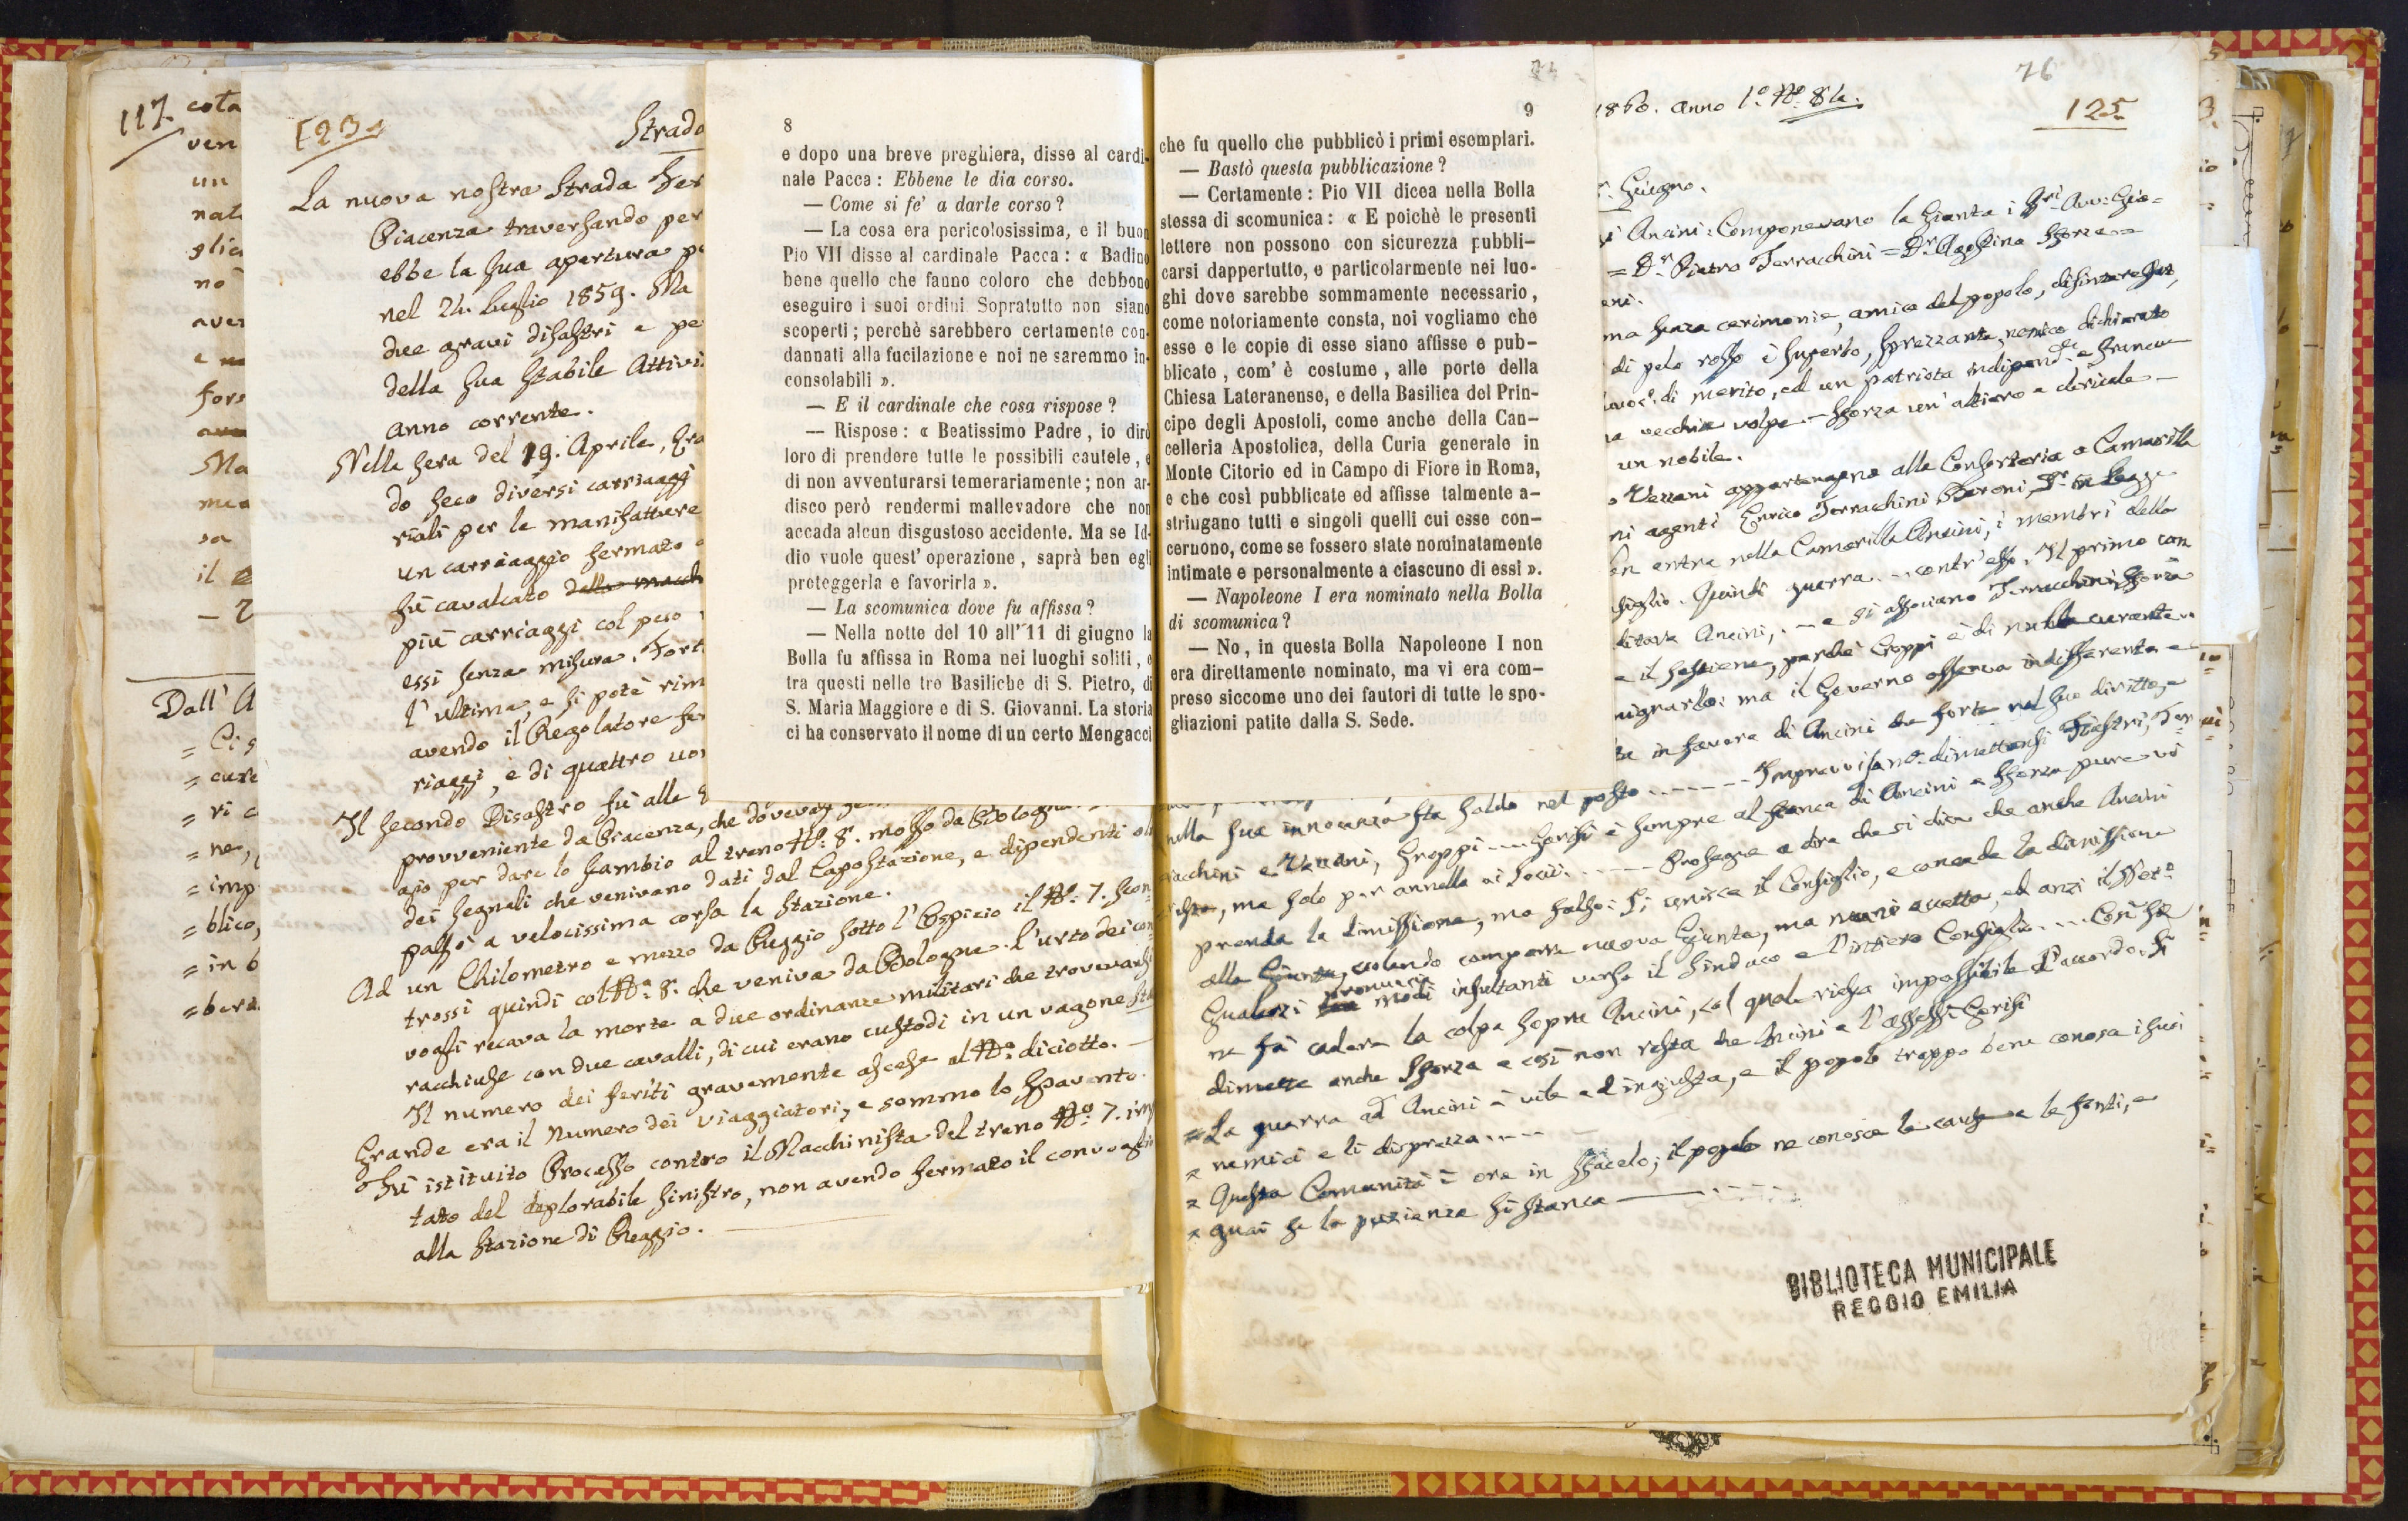 117.
cota
ven
un
nat
glic
nō
aver
fors
Ma
il
Dall' A
= Ci s
= cure
= ri c
= ne,
= imp
= blico,
= in b
= bera
[23]
Strada
La nuova nostra Strada Fer
Piacenza traversando per
ebbe la sua apertura p
nel 21. Luglio 1859. Ma
due gravi disastri e pe
della sua stabile Attivi
anno corrente.
Nella sera del 19. Aprile, gra
do seco diversi carriaggi
riali per le manifatture
un carriaggio fermato
fù cavalcato dalla macch
più carriaggi col peso
essi senza misura. Fort
l'ultima, e si potè rim
avendo il Regolatore fer
riaggi, e di quattro uo
Il secondo Disastro fù alle
provveniente da Piacenza, che doveva
agio per dare lo scambio al treno N.º 8. mosso da Bologna
dei segnali che venivano dati dal Capostazione, e dipendenti
passò a velocissima corsa la Stazione.
Ad un Chilometro e mezzo da Reggio sotto l'Ospizio il N.º 7. scon
trossi quindi col N.º 8. che veniva da Bologna. L'urto dei con
vogli recava la morte a due ordinanze militari che trovavansi
racchiuse con due cavalli, di cui erano custodi in un vagone
Il numero dei feriti gravemente ascese al N.º diciotto. —
Grande era il numero dei viaggiatori, e sommo lo spavento.
Fù istituito Processo contro il Macchinista del treno N.º 7. im
tato del deplorabile sinistro, non avendo fermato il convoglio
alla Stazione di Reggio. —
8
e dopo una breve preghiera, disse al cardi-
nale Pacca : Ebbene le dia corso.
— Come si fe' a darle corso ?
— La cosa era pericolosissima, e il buon
Pio VII disse al cardinale Pacca : « Badino
bene quello che fanno coloro che debbono
eseguire i suoi ordini. Sopratutto non siano
scoperti ; perchè sarebbero certamente con-
dannati alla fucilazione e noi ne saremmo in-
consolabili ».
— E il cardinale che cosa rispose ?
— Rispose : « Beatissimo Padre , io dirò
loro di prendere tutte le possibili cautele , e
di non avventurarsi temerariamente ; non ar-
disco però rendermi mallevadore che non
accada alcun disgustoso accidente. Ma se Id-
dio vuole quest' operazione , saprà ben egli
proteggerla e favorirla ».
— La scomunica dove fu affissa ?
— Nella notte del 10 all' 11 di giugno la
Bolla fu affissa in Roma nei luoghi soliti , e
tra questi nelle tre Basiliche di S. Pietro, di
S. Maria Maggiore e di S. Giovanni. La storia
ci ha conservato il nome di un certo Mengacci
9
che fu quello che pubblicò i primi esemplari.
— Bastò questa pubblicazione ?
— Certamente : Pio VII dicea nella Bolla
stessa di scomunica : « E poichè le presenti
lettere non possono con sicurezza pubbli-
carsi dappertutto, e particolarmente nei luo-
ghi dove sarebbe sommamente necessario ,
come notoriamente consta, noi vogliamo che
esse e le copie di esse siano affisse e pub-
blicate , com' è costume , alle porte della
Chiesa Lateranense, e della Basilica del Prin-
cipe degli Apostoli, come anche della Can-
celleria Apostolica, della Curia generale in
Monte Citorio ed in Campo di Fiore in Roma,
e che così pubblicate ed affisse talmente a-
stringano tutti e singoli quelli cui esse con-
cernono, come se fossero state nominatamente
intimate e personalmente a ciascuno di essi ».
— Napoleone I era nominato nella Bolla
di scomunica ?
— No , in questa Bolla Napoleone I non
era direttamente nominato, ma vi era com-
preso siccome uno dei fautori di tutte le spo-
gliazioni patite dalla S. Sede.
76
1860. anno 1.º N.º 84.
125
Giugno.
i Ancini : Componevano la Giunta i Sri. Avv. Gio=
= Dr. Pietro Terrachini = Dr. Agostino Sforza =
ma senza cerimonie, amico del popolo, disinteressat,
di pelo rosso è superbo, sprezzante, nemico dichiarato
di merito, ed un patriota indipend.te e franco
vecchia volpe — Sforza un' altiero e clericale —
un nobile.
Vezzani appartengono alla Consorteria o Camarilla
ni agenti Enrico Terrachini Baroni
entra nella Camarilla Ancini, i membri della
siglio. Quindi guerra .... contr'esso. Il primo con
Ancini, — e si associano Terrachini, Sforza
e il sostiene, perchè Groppi è di nulla curante
ma il Governo osserva indifferente e
in favore di Ancini che forte nel suo diritto, e
nella sua innocenza sta saldo nel posto ------ Improvvisam.e dimettonsi Fiastri, Ter
racchini e Vezzani, Groppi .... Gerisi è sempre al fianco di Ancini e Sforza pure vi
resta, ma solo per annella ai Socii. ------ Prosegue a dire che si dica che anche Ancini
prenda la dimissione, ma falso: Si unisce il Consiglio, e concede la dimissione
alla Giunta, volendo comporre nuova Giunta, ma niuno accetta, ed anzi il
Gualerzi pronuncia modi insultanti verso il Sindaco e l'intiero Consiglio .... Così si
ne fà cadere la colpa sopra Ancini, col quale riesca impossibile l'accordo. Si
dimette anche Sforza e così non resta che Ancini e l'assess. Gerisi
= La guerra ad Ancini è vile ed ingiusta, e il popolo troppo bene conosce i suoi
= nemici e li disprezza ....
= Questa Comunità è ora in sfacelo; il popolo ne conosce le cause e le fonti, e
= guai se la pazienza si stanca ------
BIBLIOTECA MUNICIPALE
REGGIO EMILIA